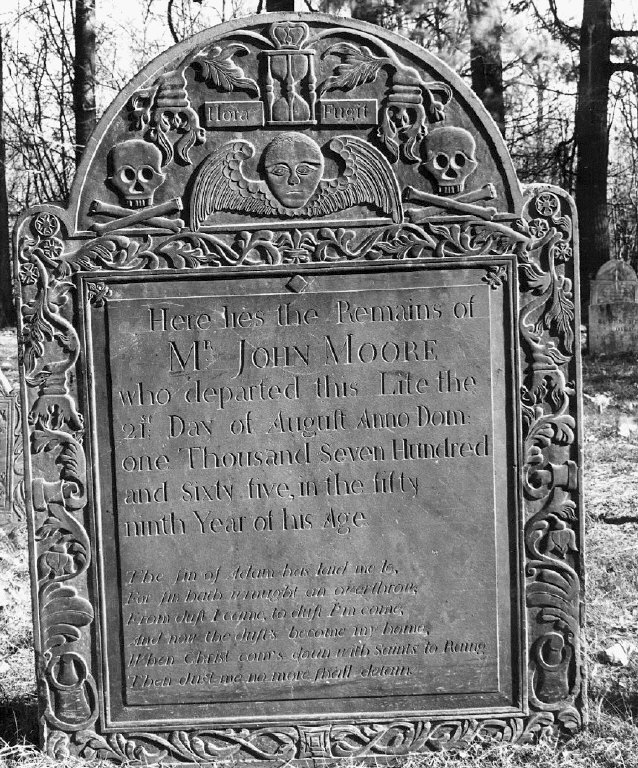 Hora Fugit
Here lies the Remains of
Mr. JOHN MOORE
who departed this Life the
21st. Day of Auguſt Anno Dom:
one Thouſand Seven Hundred
and sixty five, in the fifty
ninth Year of his Age
The ſin of Adam has laid me lo,
For ſin hath wrought our overthrow,
From duſt I came, to duſt I'm come,
And now the duſt's become my home,
When Christ comes down with Saints to Raing
Then dust me no more ſhall detain.